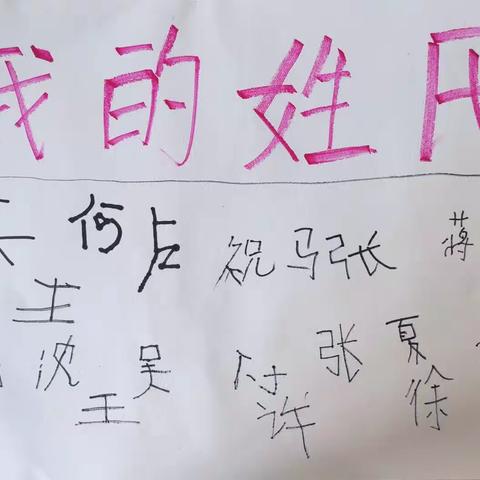 我的姓氏
何 卢 祝 马 张 蒋
主
沈 吴 付 张 夏
王 许 徐